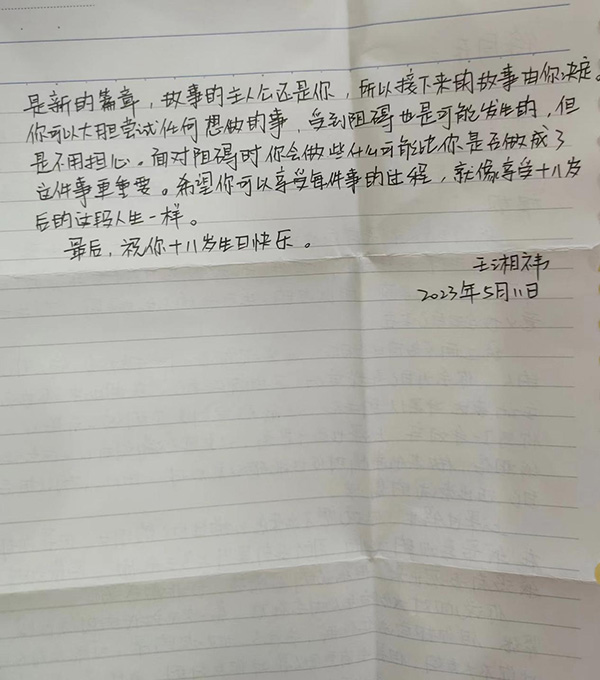 是新的篇章，故事的主人公还是你，所以接下来的故事由你决定。
你可以大胆尝试任何想做的事，受到阻碍也是可能发生的，但
是不用担心。面对阻碍时你会做些什么可能比你是否做成了
这件事更重要。希望你可以享受每件事的过程，就像享受十八岁
后的这段人生一样。
最后，祝你十八岁生日快乐。
王湘祎
2023年5月11日